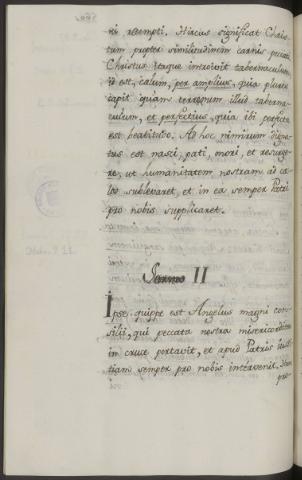 ni redempti. Hircus significat Chris-
tum propter similitudinem carnis peccati.
Christus itaque introivit tabernaculum,
id est, cælum, per amplius, quia plures
capit quam terrenum illud taberna-
culum, et perfectius, quia ibi perfecta
est beatitudo. Ad hoc nimirum digna-
tus est nasci, pati, mori, et resurge-
re, ut humanitatem nostram ad cæ-
los sublevaret, et in ea semper Patri
pro nobis supplicaret.
Hebr. 9. 11.
Sermo II
Ipse quippe est Angelus magni con-
silii, qui peccata nostra misericorditer
in cruce portavit, et apud Patris iusti-
tiam semper pro nobis intervenit.
pro-